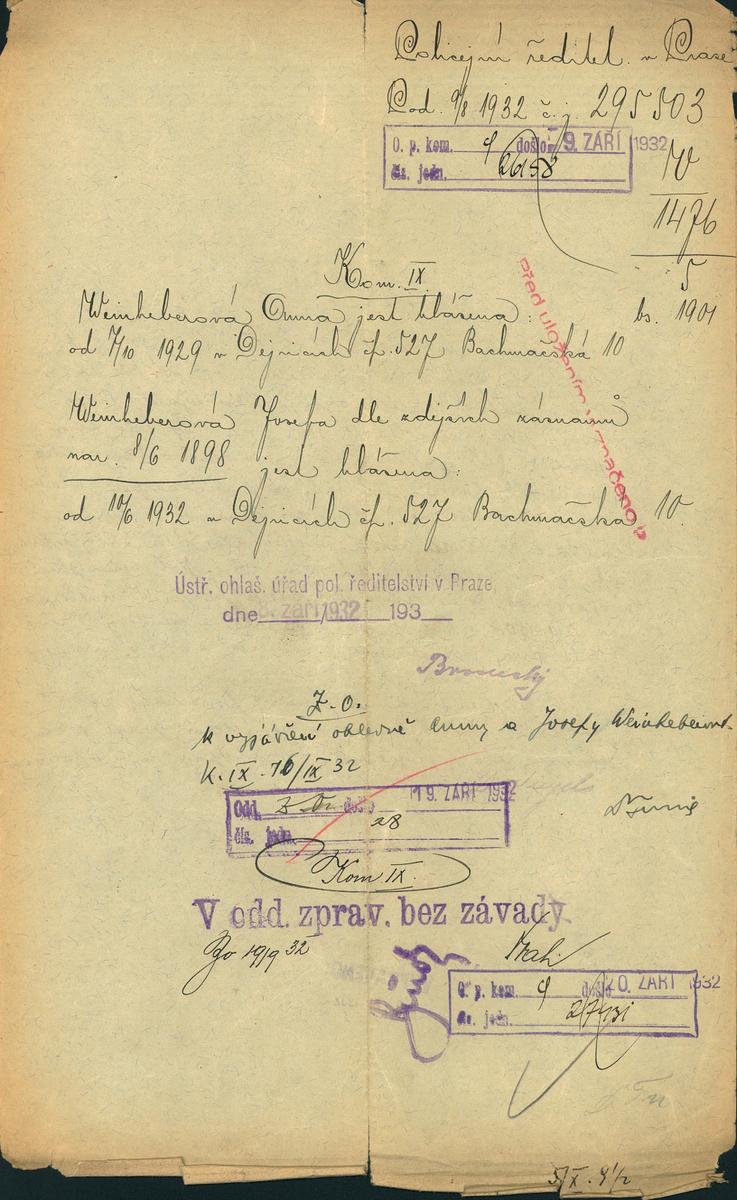 Policejní ředitel. v Praze
Pod. 9/8 1932 č. j. 295503
O. p. kom. 9 došlo 9. ZÁŘÍ 1932
čís. jedn. 26158
IV
1476
5
Kom. IX.
Weinheberová Anna jest hlášena: bs. 1901
od 7/10 1929 v Dejvicích čp. 527 Bachmačská 10
Před uložením
Weinheberová Josefa dle zdejších záznamů
nar. 8/6 1898 jest hlášena:
od 10/6 1932 v Dejvicích čp. 527 Bachmačská 10.
Ústř. ohlaš. úřad pol. ředitelství v Praze
dne 8. září 1932 193
Z. O.
k vyjádření ohledně Anny a Josefy Weinheberové.
K. IX. 16/IX 32
Odd. Z. O. došlo 19. ZÁŘÍ 1932
čís. jedn. 28
Kom IX.
V odd. zprav. bez závady
19/9 32
O. p. kom. 9 došlo 20. ZÁŘÍ 1932
čís. jedn. 27431
5/X.